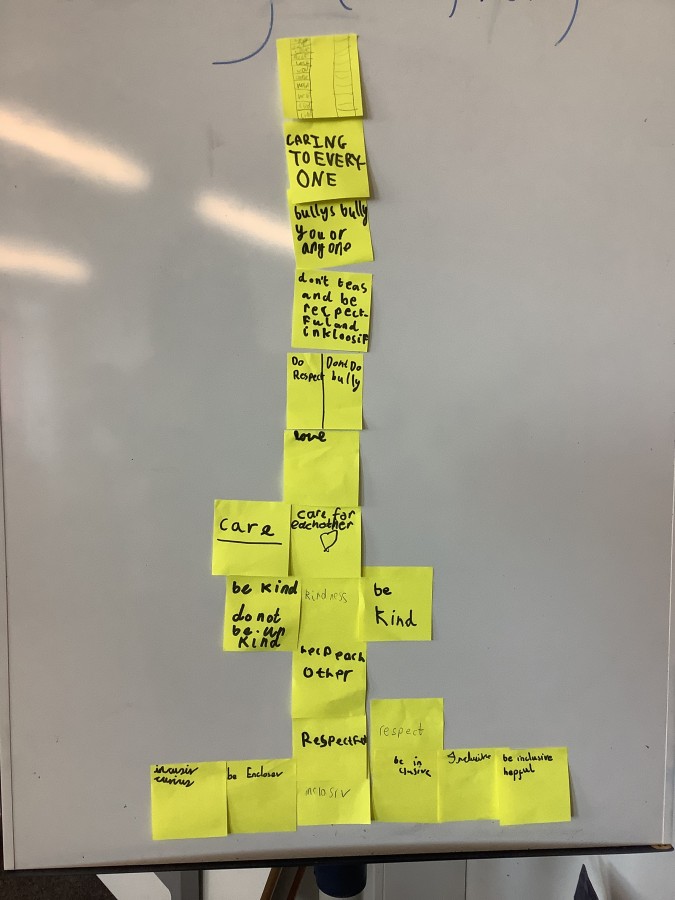 CARING
TO EVERY-
ONE
bullys bully
you or
anyone
don't teas
and be
recpect-
Ful and
inkloosif
Do
Respect
Dont Do
bully
love
care
care for
eachother
be kind
do not
be-un
kind
kindness
be
kind
help each
Other
Respectful
respect
be in
clusive
Inclusive
be inclusive
hepful
be Encloser
inclosiv